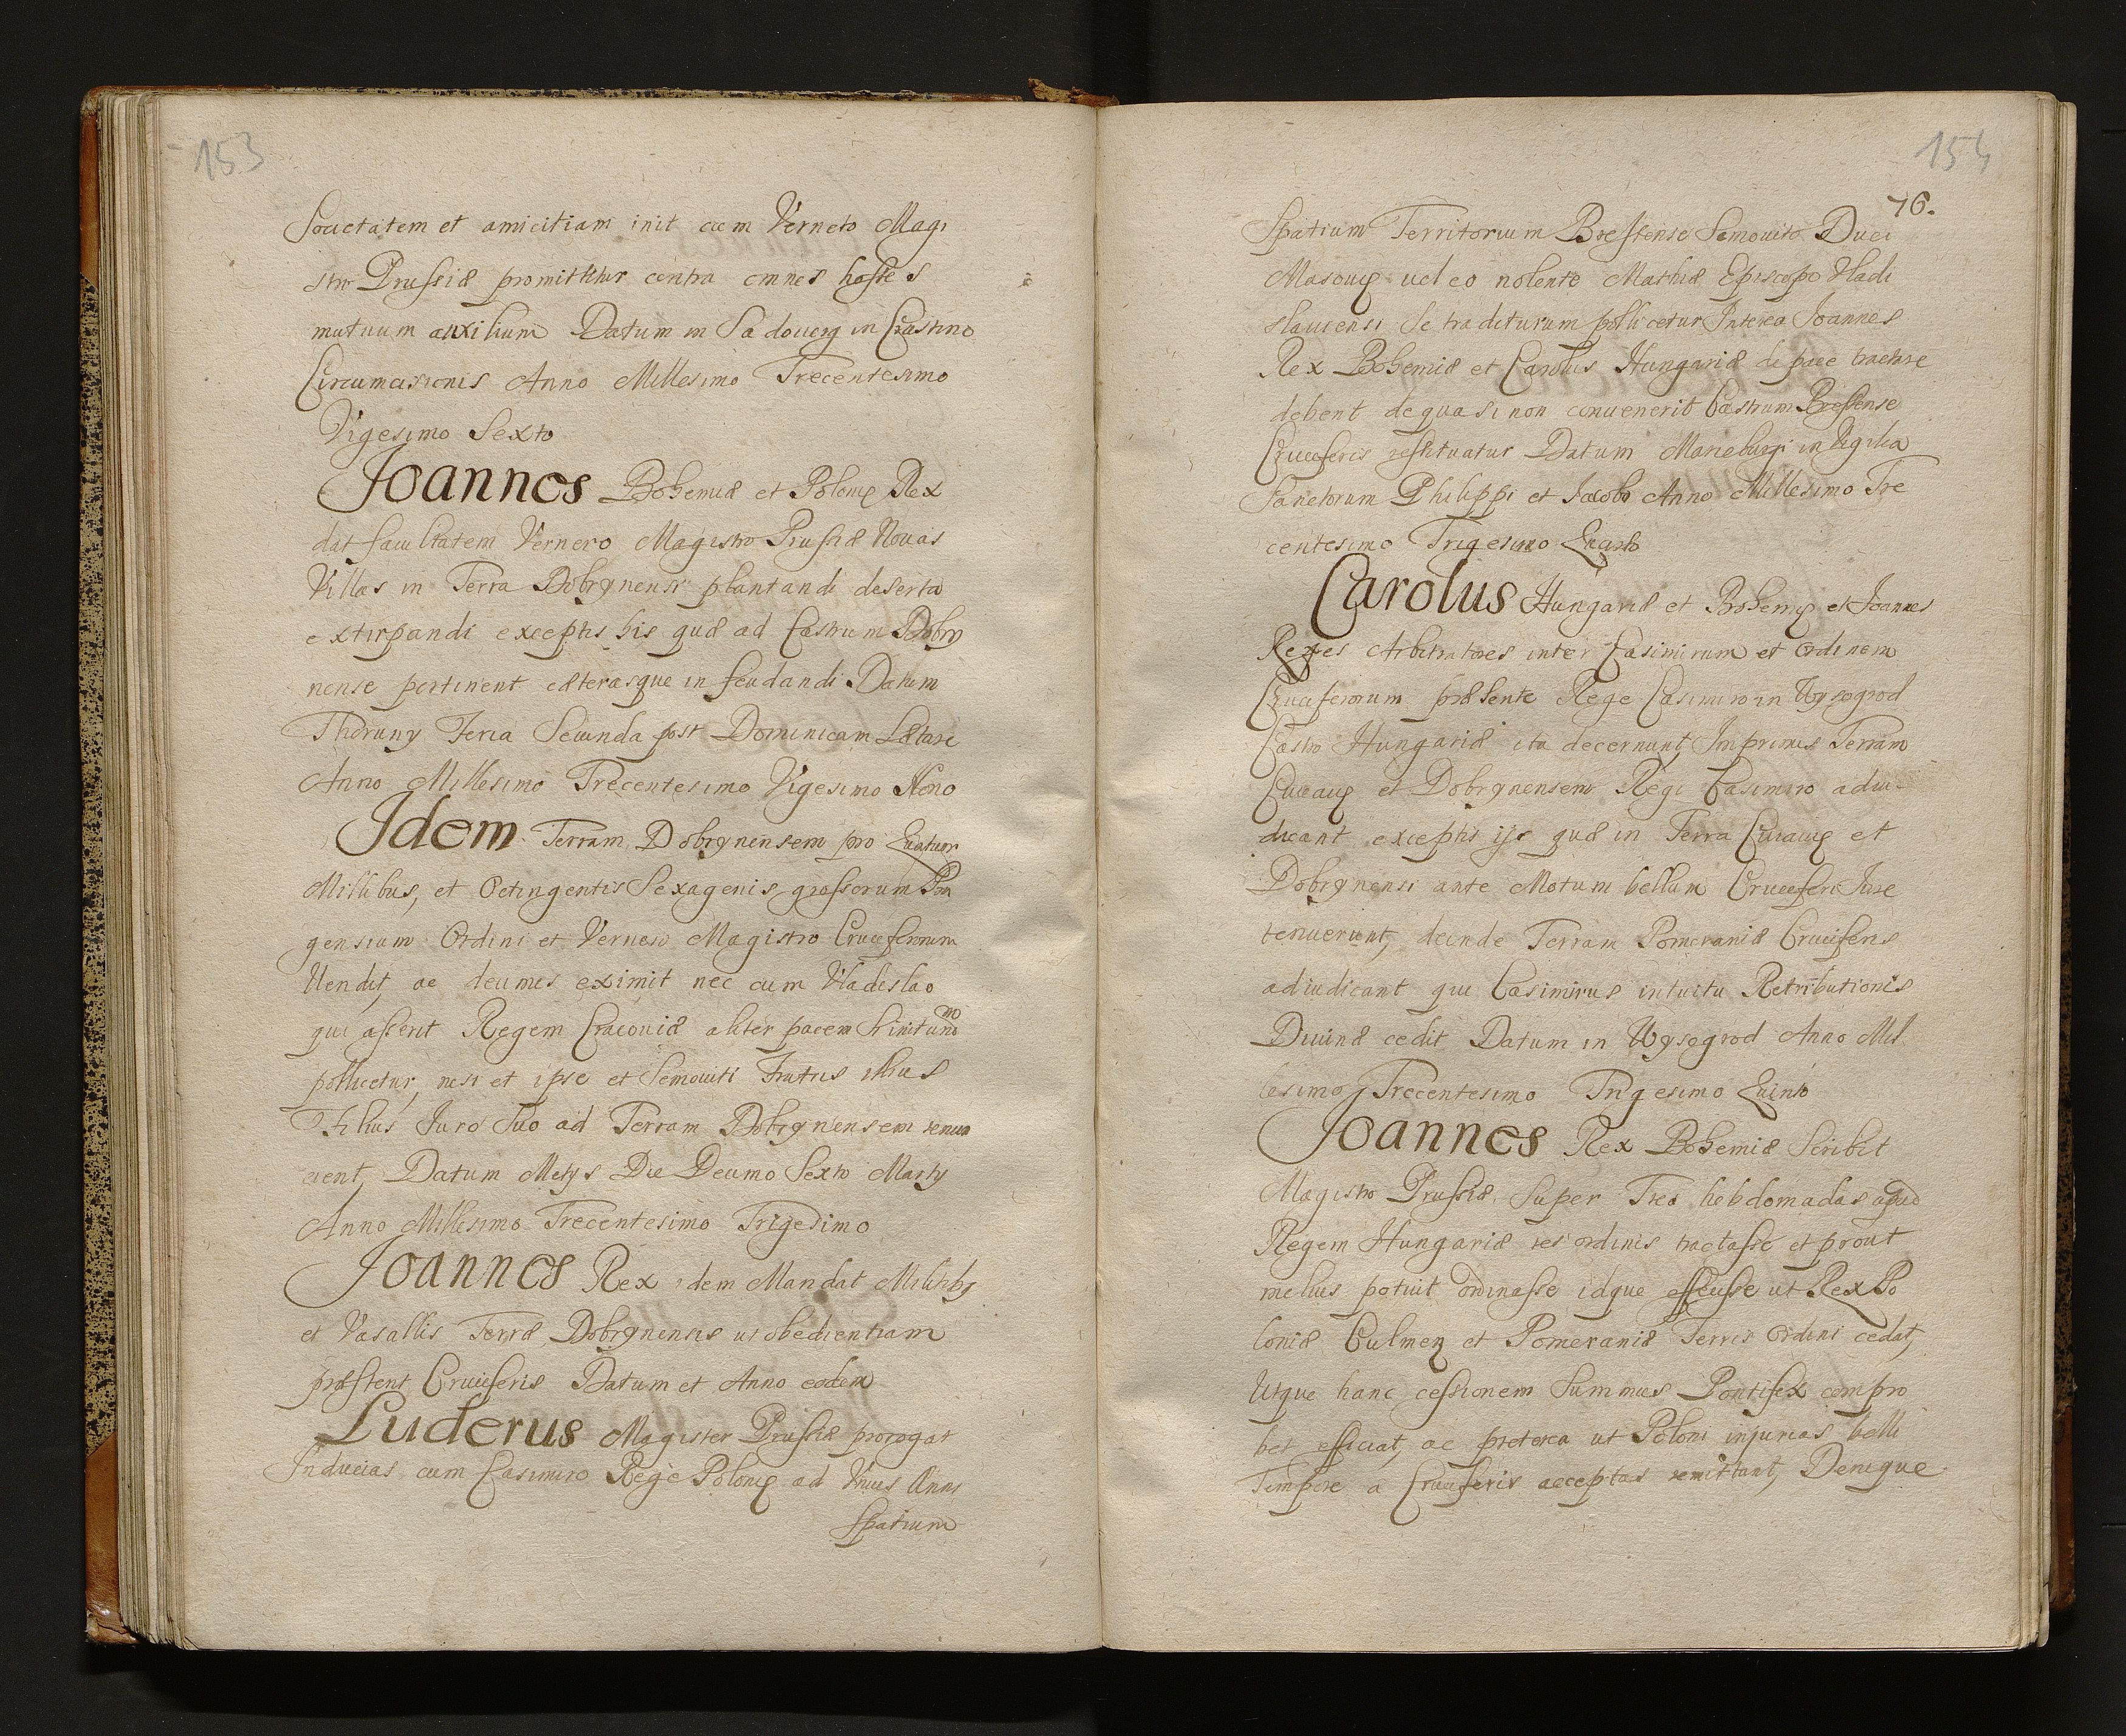 153
Societatem et amicitiam init cum Verneto Magi
stro Prussiæ promittitur contra omnes hostes
mutuum auxilium Datum in Sadouerg in Crastino
Circumcisionis Anno Millesimo Trecentesimo
Vigesimo Sexto
Joannes Bohemiæ et Poloniæ Rex
dat facultatem Vernero Magistro Prussiæ Nouas
Villas in Terra Dobrynensi plantandi deserta
extirpandi exceptis his quæ ad Castrum Dobry
nense pertinent cæterasque infeudandi Datum
Thoruny Feria Secunda post Dominicam Lætare
Anno Millesimo Trecentesimo Vigesimo Nono
Idem Terram Dobrynensem pro Quatuor
Millibus, et Octingentis Sexagenis grossorum Pra
gensium Ordini et Vernero Magistro Cruciferorum
Vendit, ac decumis eximit nec cum Vladislao
qui asserit Regem Cracouiæ aliter pacem
pollicetur, nisi et ipse et Semouiti Fratris illius
Filius Juro Suo ad Terram Dobrynensem renun
cient, Datum Metys Die Decimo Sexto Martij
Anno Millesimo Trecentesimo Trigesimo
Joannes Rex idem Mandat Militibq
et Vasallis Terræ Dobrynensis ut obedientiam
præstent Cruciferis Datum et Anno eodem
Luderus Magister Prussiæ prorogat
Inducias cum Casimiro Rege Poloniæ ad Vnius Anni
Spatium
154
76.
Spatium Territorium Brestense Semouito Duci
Masouiæ uel eo nolente Mathiæ Episcopo Vladi
slauiensi Se traditurum pollicetur Interea Joannes
Rex Bohemiæ et Carolus Hungariæ de pace tractare
debent de qua si non conuenerit Castrum Brestense
Cruciferis restituatur Datum Marieburgi in Vigilia
Sanctorum Philippi et Jacobi Anno Millesimo Tre
centesimo Trigesimo Quarto
Carolus Hungariæ et Bohemiæ et Joannes
Reges Arbitratores inter Casimirum et Ordinem
Cruciferorum præsente Rege Casimiro in Wysogrod
Castro Hungariæ ita decernunt, Imprimis Terram
Cuiauiæ et Dobrynensem Regi Casimiro adiu
dicant exceptis ijs quæ in Terra Cuiauiæ et
Dobrynensi ante Motum bellum Cruciferi Jure
tenuerunt, deinde Terram Pomeraniæ Cruciferis
adiudicant qui Casimirus intuitu Retributionis
Diuinæ cedit Datum in Wysogrod Anno Mil
lesimo Trecentesimo Trigesimo Quinto
Joannes Rex Bohemiæ Scribit
Magistro Prussiæ Super Tres hebdomadas apud
Regem Hungariæ res ordinis tractasse et prout
melius potuit ordinasse idque effecisse ut Rex Po
loniæ Culmen et Pomeraniæ Terris Ordini cedat,
Utque hanc cessionem Summus Pontifex compro
bet efficiat, ac preterea ut Poloni injurias belli
Tempore a Cruciferis acceptas remittant, Denique